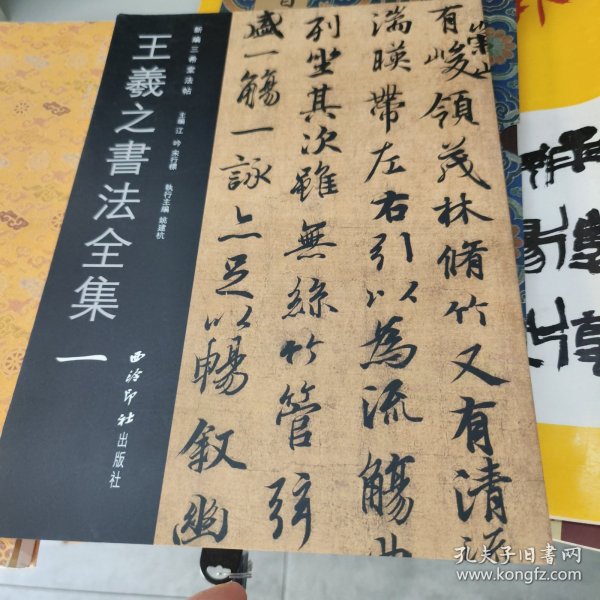 新编三希堂法帖
王羲之書法全集
一
主编 江吟 朱行標
執行主编 姚建杭
西泠印社出版社
崇山
有峻領茂林脩竹又有清
湍暎帶左右引以為流觴
列坐其次雖無絲竹管弦
盛一觴一詠亦足以暢叙幽
孔夫子旧书网
www.kongfz.com